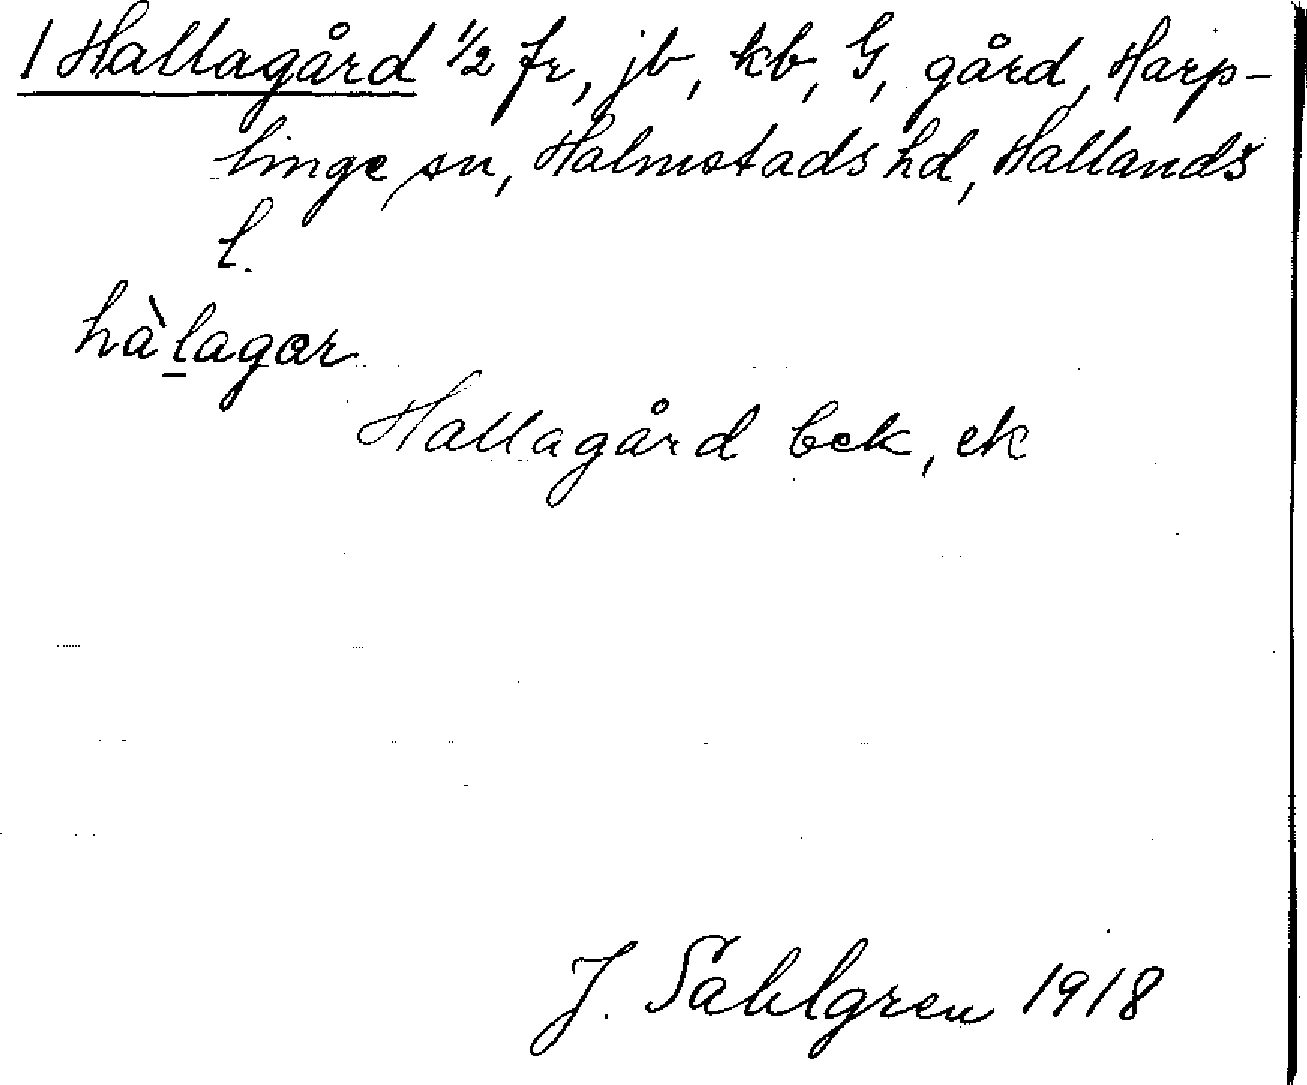 1 Hallagård ½ fr, jb, kb, G, gård, Harp-
linge sn, Halmstads hd, Hallands
l.
hàlagar
Hallagård bek, ek
J. Sahlgren 1918